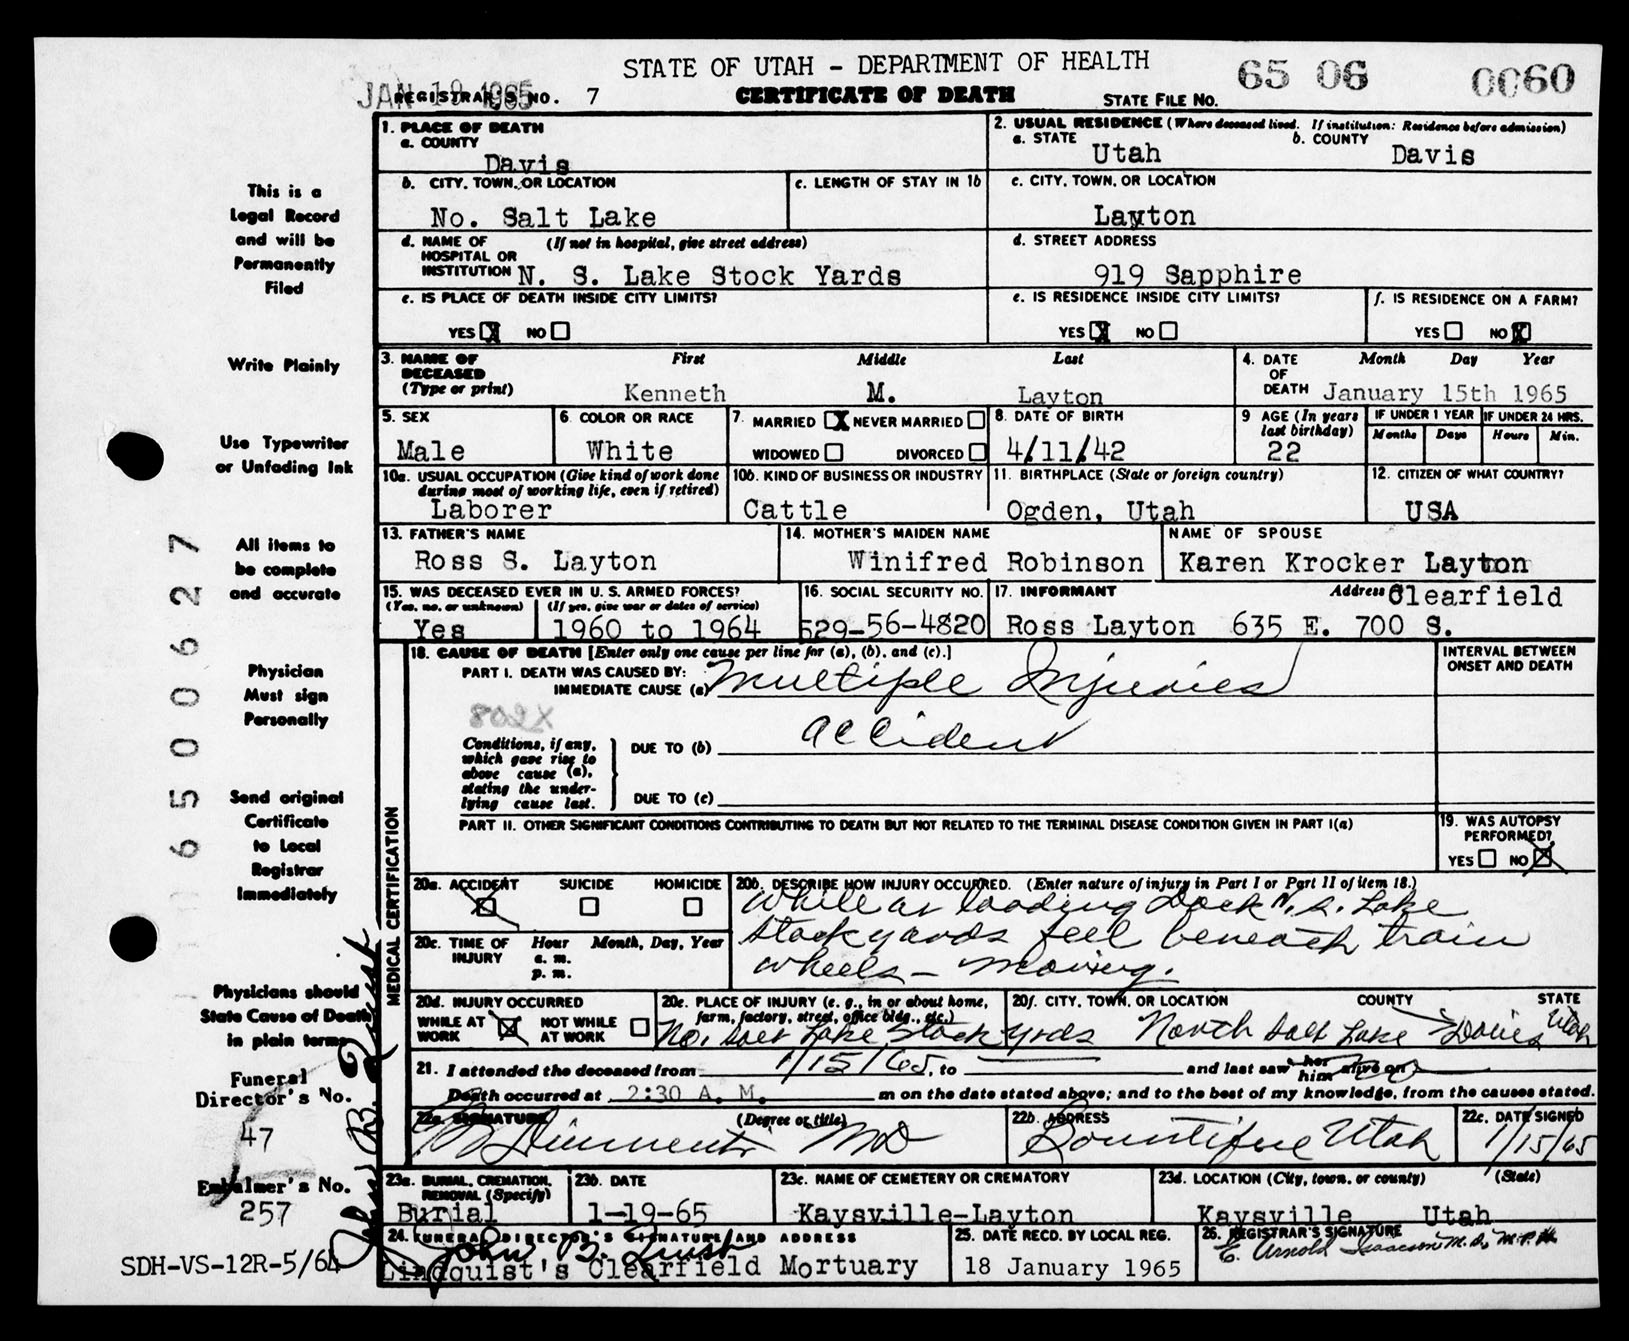 STATE OF UTAH - DEPARTMENT OF HEALTH
65 06 0060
JAN 19 1965
REGISTRAR'S NO. 7
CERTIFICATE OF DEATH
STATE FILE NO.
1. PLACE OF DEATH
a. COUNTY
Davis
2. USUAL RESIDENCE (Where deceased lived. If institution: Residence before admission)
a. STATE Utah
b. COUNTY Davis
b. CITY, TOWN, OR LOCATION
No. Salt Lake
c. LENGTH OF STAY IN 1b
c. CITY, TOWN, OR LOCATION
Layton
d. NAME OF HOSPITAL OR INSTITUTION (If not in hospital, give street address)
N. S. Lake Stock Yards
d. STREET ADDRESS
919 Sapphire
e. IS PLACE OF DEATH INSIDE CITY LIMITS?
YES X NO
e. IS RESIDENCE INSIDE CITY LIMITS?
YES X NO
f. IS RESIDENCE ON A FARM?
YES NO X
3. NAME OF DECEASED (Type or print)
First Middle Last
Kenneth M. Layton
4. DATE OF DEATH
Month Day Year
January 15th 1965
5. SEX
Male
6. COLOR OR RACE
White
7. MARRIED X NEVER MARRIED
WIDOWED DIVORCED
8. DATE OF BIRTH
4/11/42
9 AGE (In years last birthday)
22
IF UNDER 1 YEAR
Months Days
IF UNDER 24 HRS.
Hours Min.
10a. USUAL OCCUPATION (Give kind of work done during most of working life, even if retired)
Laborer
10b. KIND OF BUSINESS OR INDUSTRY
Cattle
11. BIRTHPLACE (State or foreign country)
Ogden, Utah
12. CITIZEN OF WHAT COUNTRY?
USA
13. FATHER'S NAME
Ross S. Layton
14. MOTHER'S MAIDEN NAME
Winifred Robinson
NAME OF SPOUSE
Karen Krocker Layton
15. WAS DECEASED EVER IN U. S. ARMED FORCES?
(Yes, no, or unknown) (If yes, give war or dates of service)
Yes 1960 to 1964
16. SOCIAL SECURITY NO.
529-56-4820
17. INFORMANT Address Clearfield
Ross Layton 635 E. 700 S.
MEDICAL CERTIFICATION
18. CAUSE OF DEATH [Enter only one cause per line for (a), (b), and (c).]
INTERVAL BETWEEN ONSET AND DEATH
PART I. DEATH WAS CAUSED BY:
IMMEDIATE CAUSE (a) Multiple Injuries
802X
Conditions, if any, which gave rise to above cause (a), stating the underlying cause last.
DUE TO (b) accident
DUE TO (c)
PART II. OTHER SIGNIFICANT CONDITIONS CONTRIBUTING TO DEATH BUT NOT RELATED TO THE TERMINAL DISEASE CONDITION GIVEN IN PART I(a)
19. WAS AUTOPSY PERFORMED?
YES NO X
20a. ACCIDENT SUICIDE HOMICIDE
20b. DESCRIBE HOW INJURY OCCURRED. (Enter nature of injury in Part I or Part II of item 18.)
While at loading Dock N. S. Lake
Stockyards fell beneath train
wheels - moving.
20c. TIME OF INJURY
Hour Month, Day, Year
a. m.
p. m.
20d. INJURY OCCURRED
WHILE AT WORK X NOT WHILE AT WORK
20e. PLACE OF INJURY (e. g., in or about home, farm, factory, street, office bldg., etc.)
No. Salt Lake Stock Yrds
20f. CITY, TOWN, OR LOCATION COUNTY STATE
North Salt Lake Davis Utah
21. I attended the deceased from 1/15/65, to and last saw her him alive on
Death occurred at 2:30 A. M. m on the date stated above; and to the best of my knowledge, from the causes stated.
22a. SIGNATURE (Degree or title)
MD
22b. ADDRESS
Bountiful Utah
22c. DATE SIGNED
1/15/65
23a. BURIAL, CREMATION, REMOVAL (Specify)
Burial
23b. DATE
1-19-65
23c. NAME OF CEMETERY OR CREMATORY
Kaysville-Layton
23d. LOCATION (City, town, or county) (State)
Kaysville Utah
24. FUNERAL DIRECTOR'S SIGNATURE AND ADDRESS
Lindquist's Clearfield Mortuary
25. DATE RECD. BY LOCAL REG.
18 January 1965
26. REGISTRAR'S SIGNATURE
E. Arnold Isaacson M.D., M.P.H.
This is a
Legal Record
and will be
Permanently
Filed
Write Plainly
Use Typewriter
or Unfading Ink
All items to
be complete
and accurate
Physician
Must sign
Personally
Send original
Certificate
to Local
Registrar
Immediately
Physicians should
State Cause of Death
in plain terms
Funeral
Director's No.
47
Embalmer's No.
257
SDH-VS-12R-5/64